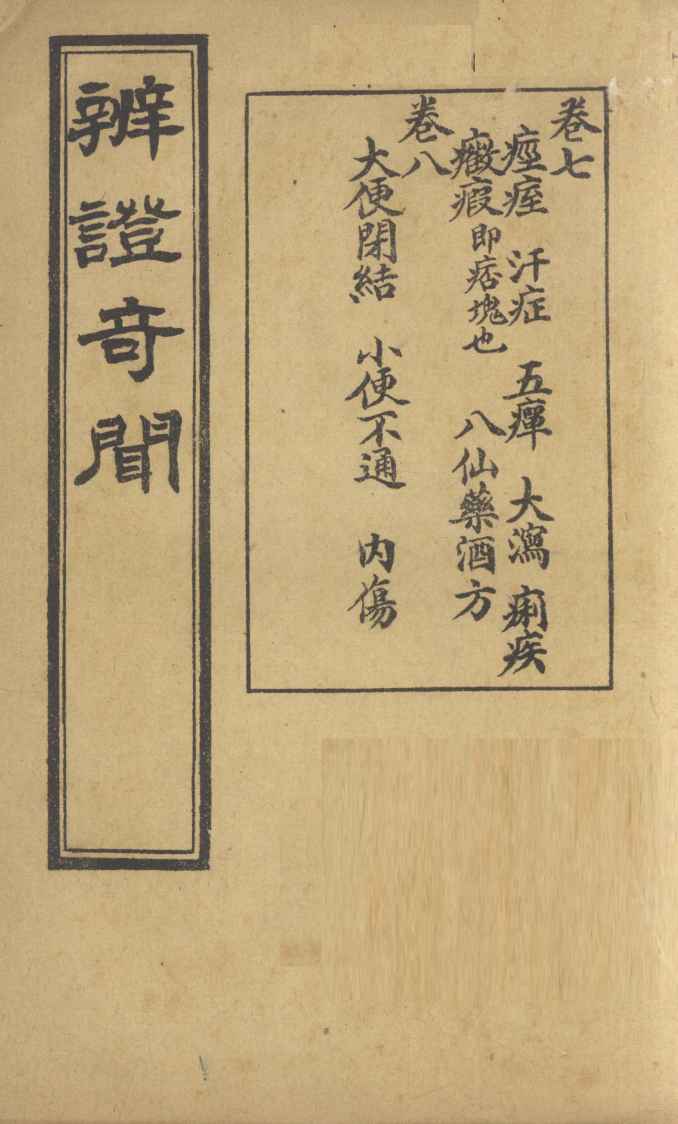 卷七
痙痓　汗症　五癉　大瀉　痢疾
癥瘕即痞塊也　八仙藥酒方
卷八
大便閉結　小便不通　內傷
辨證奇聞